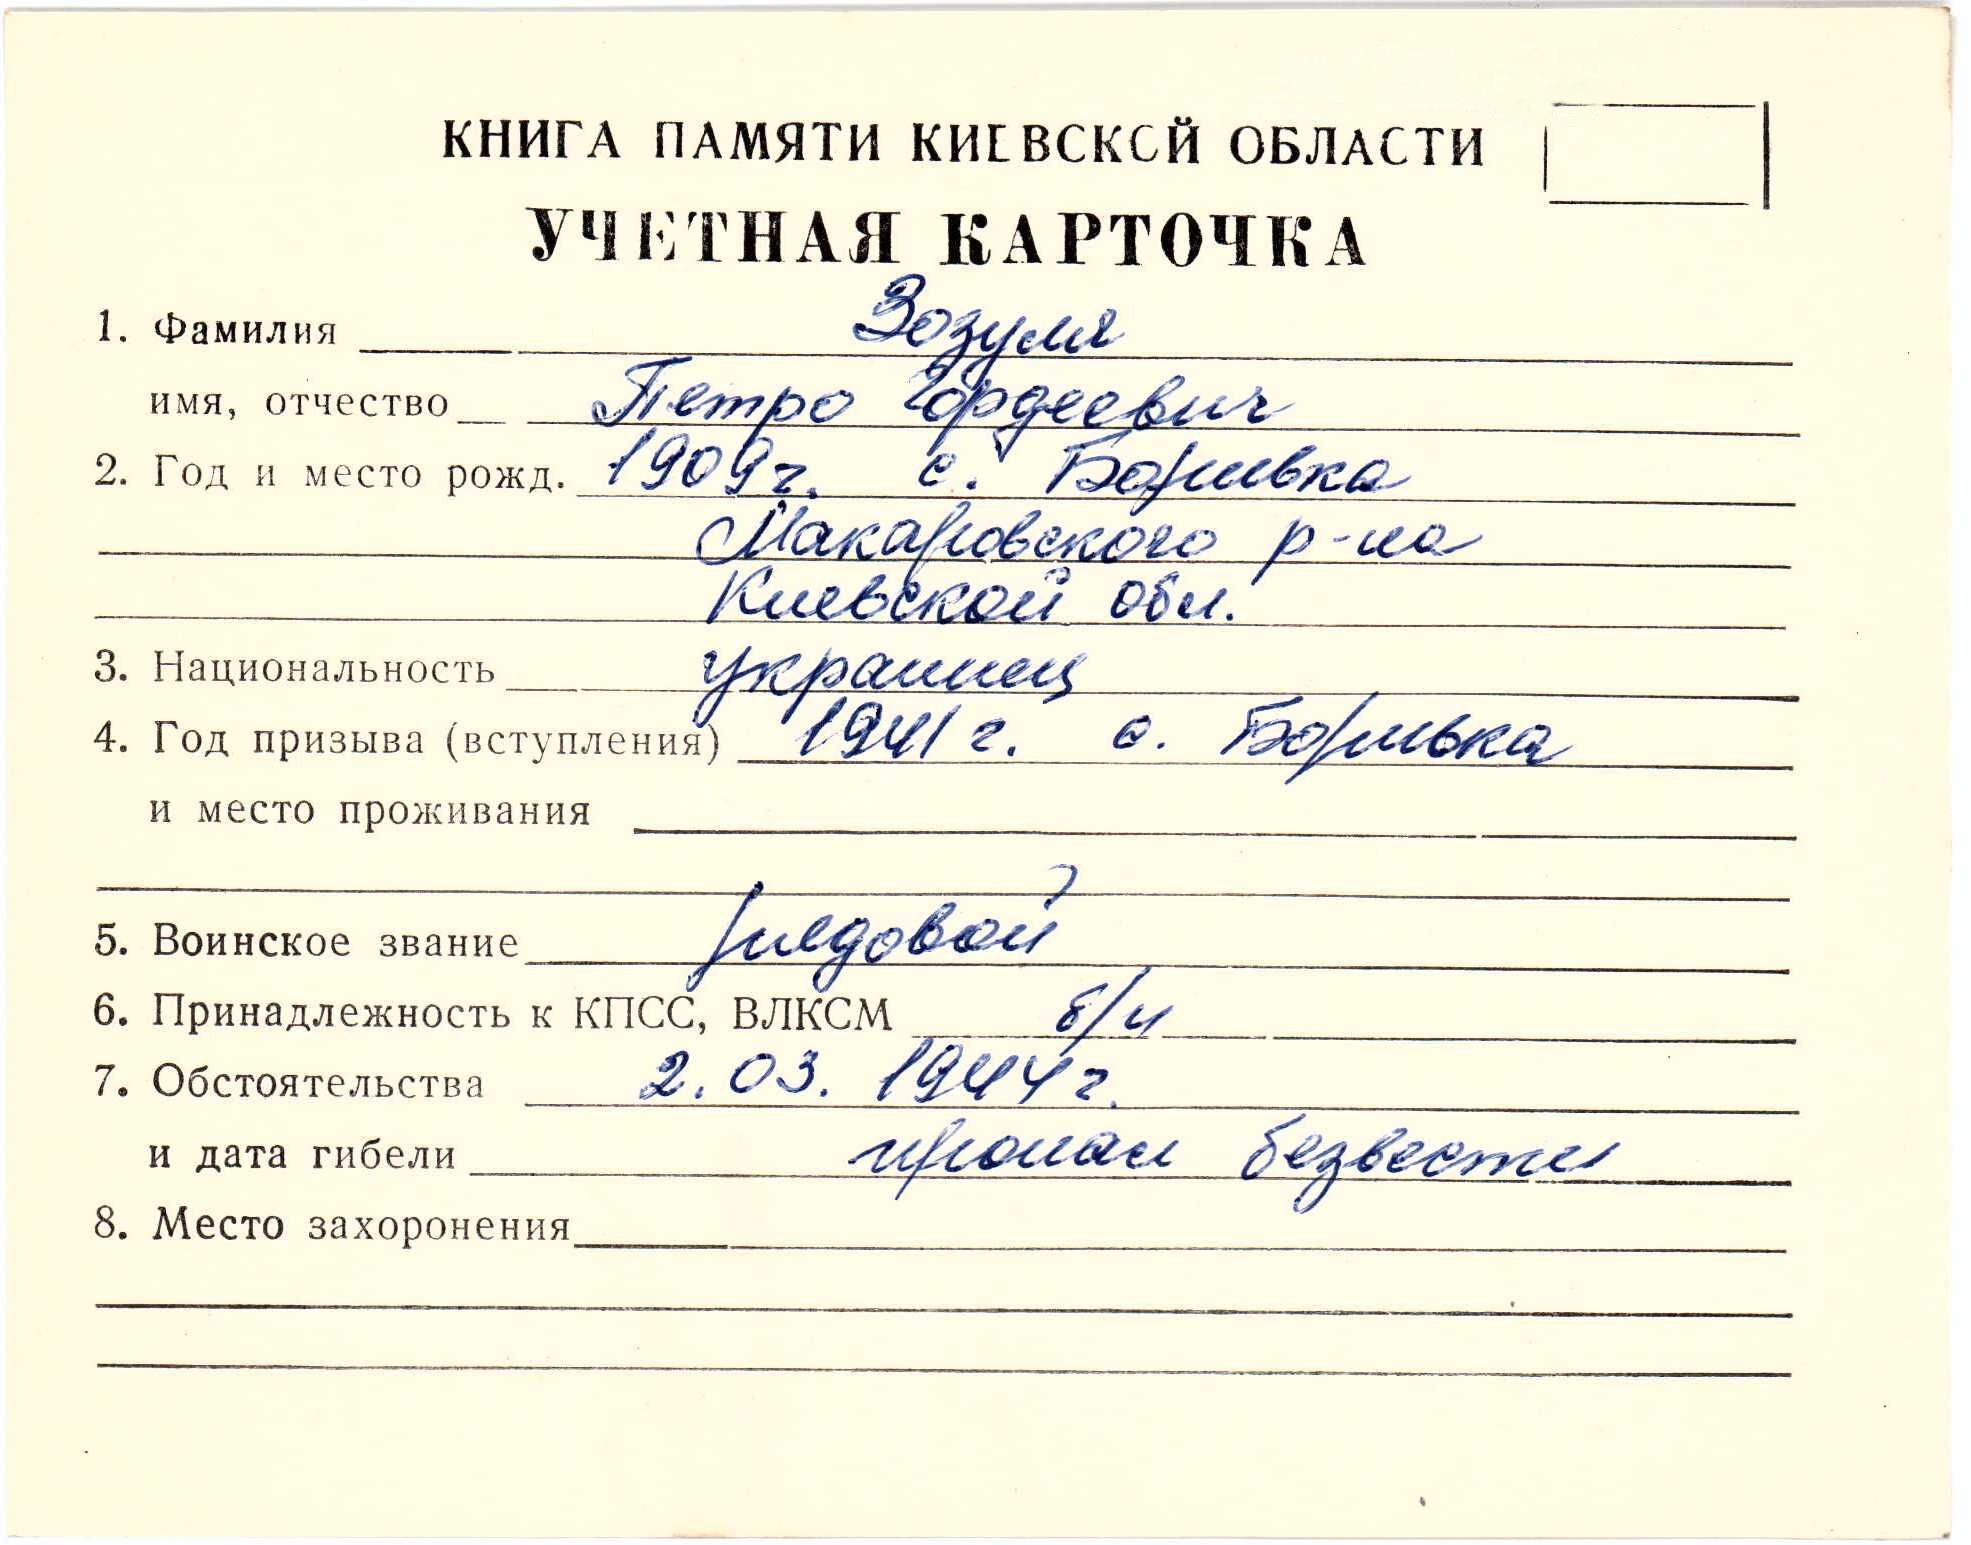 КНИГА ПАМЯТИ КИЕВСКОЙ ОБЛАСТИ
УЧЕТНАЯ КАРТОЧКА
1. Фамилия Зозуля
имя, отчество Петро Гордеевич
2. Год и место рожд. 1909 г. с. Боривка
Макаровского р-на
Киевской обл.
3. Национальность украинец
4. Год призыва (вступления) 1941 г. с. Боривка
и место проживания
5. Воинское звание рядовой
6. Принадлежность к КПСС, ВЛКСМ б/п
7. Обстоятельства 2.03.1944 г.
и дата гибели пропал безвести
8. Место захоронения